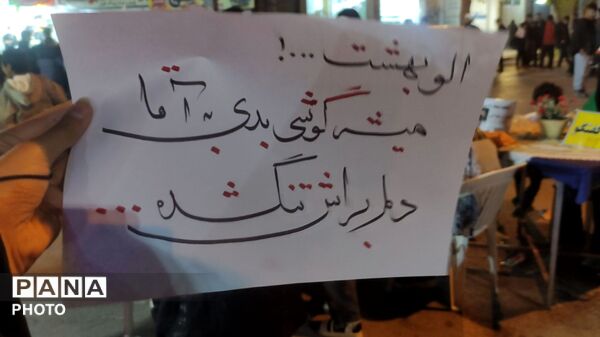 الو بهشت ...!
میشه گوشی بدی به آقا
دلم براش تنگ شده ...
PANA
PHOTO